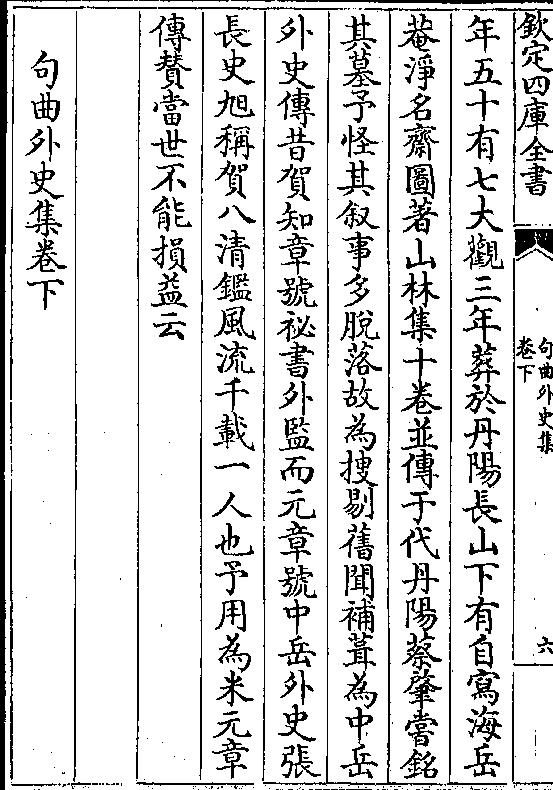 欽定四庫全書
句曲外史集
卷下
六
年五十有七大觀三年葬於丹陽長山下有自寫海岳
菴淨名齋圖著山林集十卷並傳于代丹陽蔡肇嘗銘
其墓予怪其叙事多脫落故為搜剔舊聞補葺為中岳
外史傳昔賀知章號祕書外監而元章號中岳外史張
長史旭稱賀八清鑑風流千載一人也予用為米元章
傳賛當世不能損益云
句曲外史集卷下